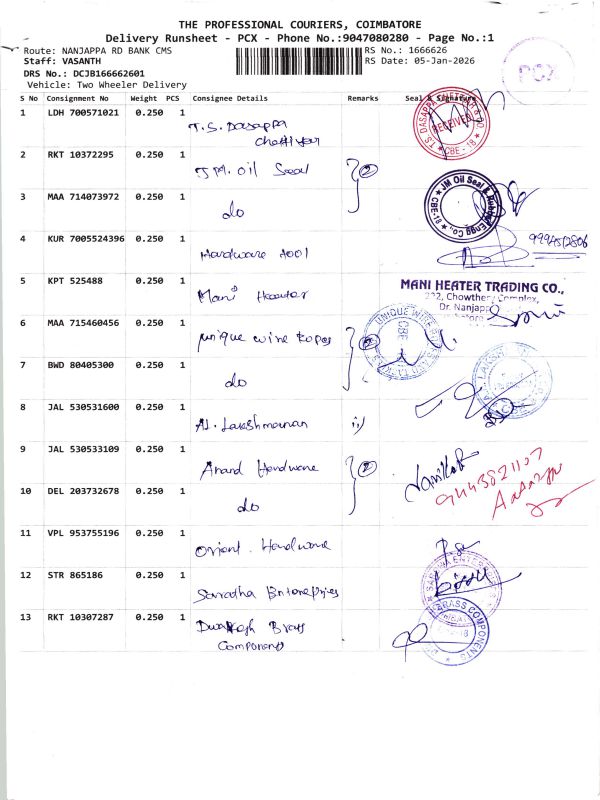 THE PROFESSIONAL COURIERS, COIMBATORE
Delivery Runsheet - PCX - Phone No.:9047080280 - Page No.:1
Route: NANJAPPA RD BANK CMS RS No.: 1666626
Staff: VASANTH RS Date: 05-Jan-2026
DRS No.: DCJB166662601
Vehicle: Two Wheeler Delivery
PCX
S No Consignment No Weight PCS Consignee Details Remarks Seal & Signature
1 LDH 700571021 0.250 1 T.S. Dasappa Chettiyar
RECEIVED
CBE - 18
2 RKT 10372295 0.250 1 J.M. Oil Seal 2
JM Oil Seal & Rubber Engg Co., CBE-18
3 MAA 714073972 0.250 1 do
4 KUR 7005524396 0.250 1 Hardware Tool
5 KPT 525488 0.250 1 Mani Heater
MANI HEATER TRADING CO.,
222, Chowthery Complex,
Dr. Nanjappa
6 MAA 715460456 0.250 1 unique wire ropes
UNIQUE WIRE
CBE
7 BWD 80405300 0.250 1 do
LAKSHM
8 JAL 530531600 0.250 1 AL. Lakshmanan
9 JAL 530533109 0.250 1 Anand Hardware 2
9443821107
10 DEL 203732678 0.250 1 do
11 VPL 953755196 0.250 1 Orient Hardware
12 STR 865186 0.250 1 Saradha Enterprises
13 RKT 10307287 0.250 1 Dwarkesh Brass Components
BRASS COMPONENTS